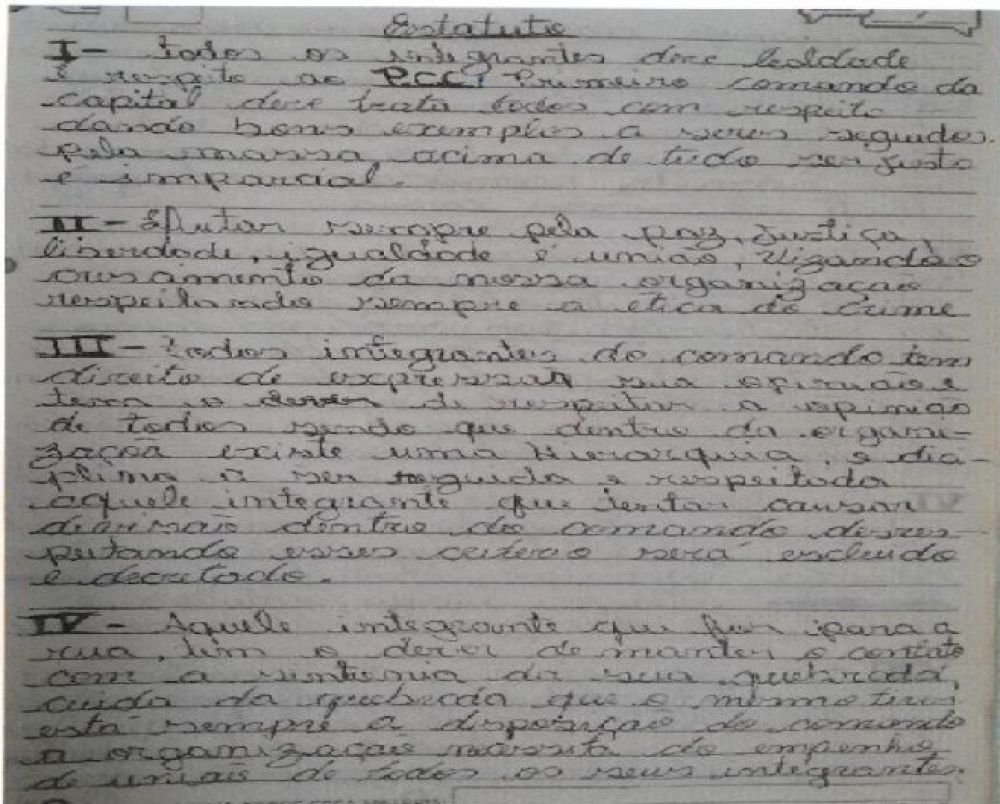 Estatuto
I- todos os integrantes deve lealdade
é respeito ao PCC, Primeiro comando da
capital deve trata todos com respeito
dando bons exemplos a seres seguidos
pela massa, acima de tudo ser justo
e imparcial.
II- lutar sempre pela paz, justiça,
liberdade, igualdade é união, vizando o
da nossa organização
respeitando sempre a ética do crime
III- todos integrantes do comando tem
direito de expressar sua opinião e
tem o dever de respeitar a opinião
de todos sendo que dentro da organi-
zação existe uma Hierarquia, e dia-
plima a ser seguida e respeitada
aquele integrante que tentar causar
divisão dentro do comando desres
peitando esses criterio será excluido
e decretado.
IV- Aquele integrante que for para a
rua, tem o dever de manter o contato
com a sintonia da sua quebrada,
cuida da quebrada que o mesmo tiver
está sempre a disposição do comando
a organização nessita do empenho
de uniais de todos os seus integrantes.